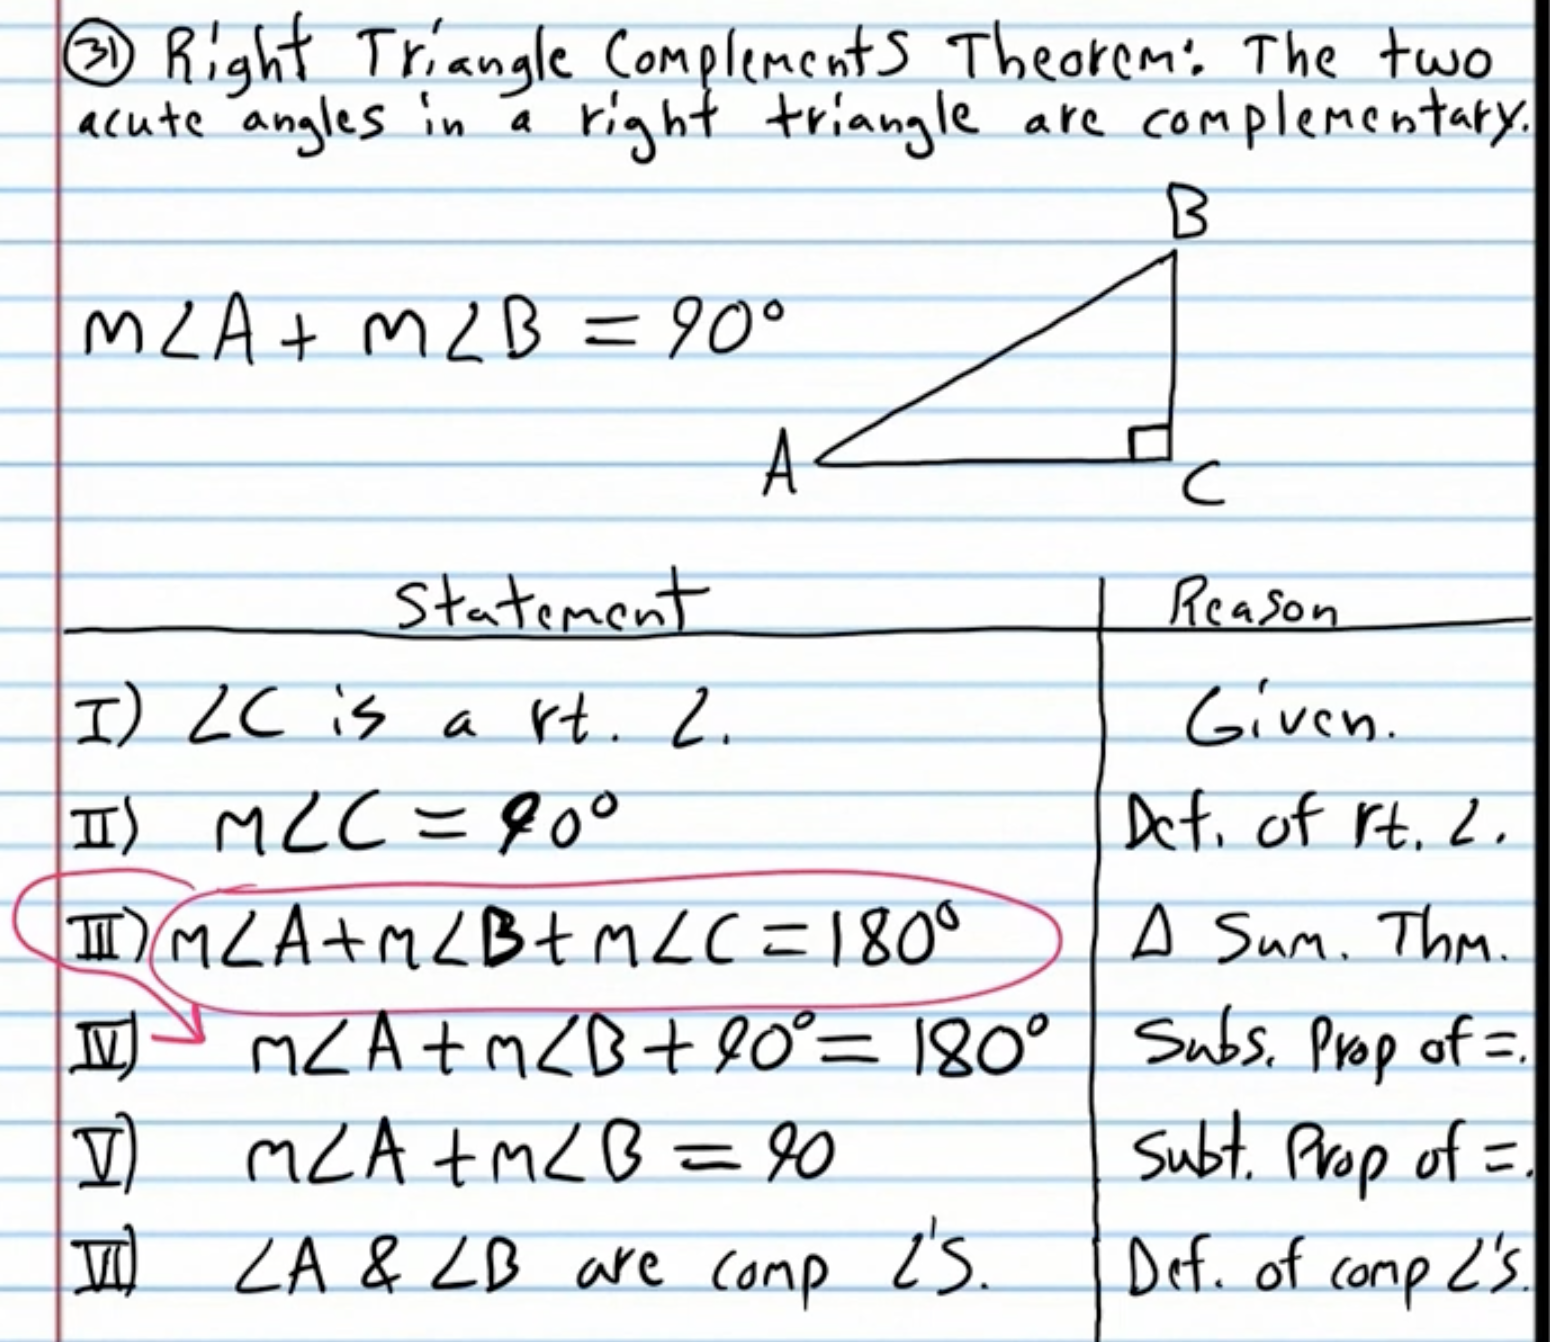 31 Right Triangle Complements Theorem: The two
acute angles in a right triangle are complementary.
B
m∠A + m∠B = 90°
A
C
Statement Reason
I) ∠C is a rt. ∠. Given.
II) m∠C = 90° Def. of rt. ∠.
III) m∠A+m∠B+m∠C=180° Δ Sum. Thm.
IV) m∠A+m∠B+90°=180° Subs. Prop of =.
V) m∠A+m∠B=90 Subt. Prop of =.
VI) ∠A & ∠B are comp ∠'s. Def. of comp ∠'s.